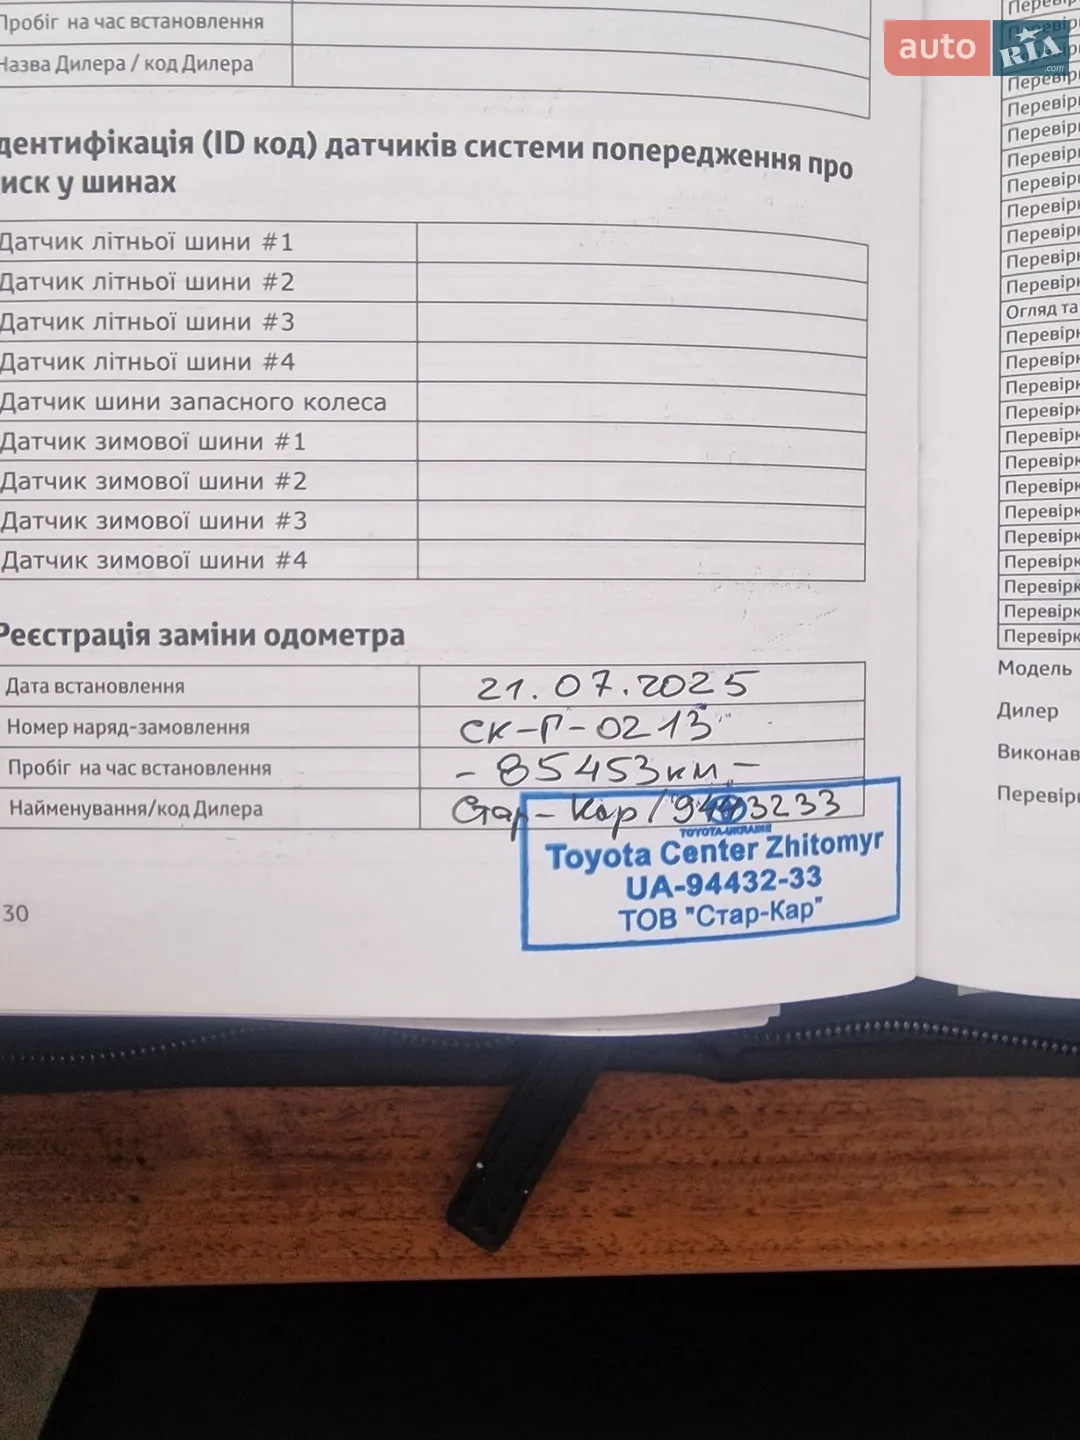 Пробіг на час встановлення
Назва Дилера / код Дилера
дентифікація (ID код) датчиків системи попередження про
иск у шинах
Датчик літньої шини #1
Датчик літньої шини #2
Датчик літньої шини #3
Датчик літньої шини #4
Датчик шини запасного колеса
Датчик зимової шини #1
Датчик зимової шини #2
Датчик зимової шини #3
Датчик зимової шини #4
Реєстрація заміни одометра
Дата встановлення 21.07.2025
Номер наряд-замовлення СК-Г-0213
Пробіг на час встановлення - 85453км -
Найменування/код Дилера Стар-Кар/9443233
TOYOTA-UKRAINE
Toyota Center Zhitomyr
UA-94432-33
ТОВ "Стар-Кар"
30
auto RIA .com
Перевір
Перевір
Перевір
Перевір
Перевір
Перевір
Перевір
Перевір
Перевір
Огляд та
Перевірк
Перевірк
Перевірк
Перевірк
Перевірк
Перевірк
Перевірк
Перевірк
Перевірк
Перевірк
Перевірк
Перевірк
Перевірк
Модель
Дилер
Виконав
Перевір